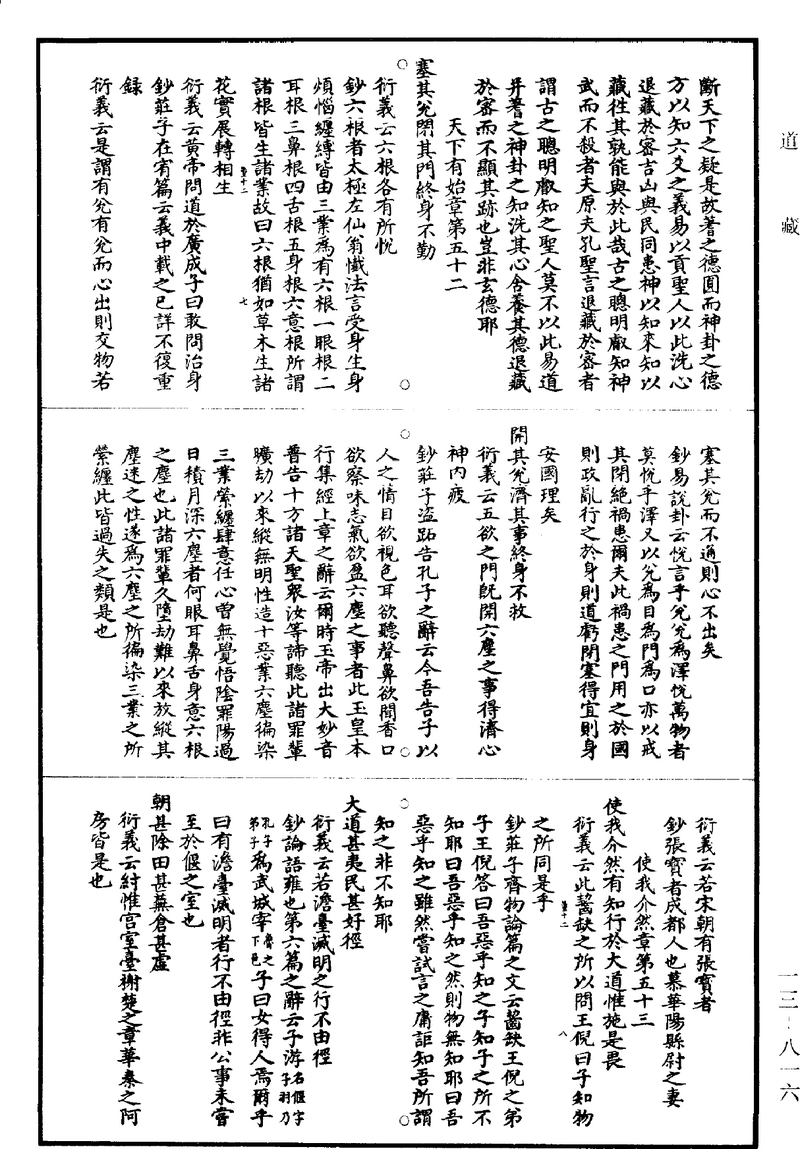 道藏
斷天下之疑是故蓍之德圓而神卦之德
方以知六爻之義易以貢聖人以此洗心
退藏於密吉凶與民同患神以知來知以
藏徃其孰能與於此哉古之聰明叡知神
武而不殺者夫原夫孔聖言退藏於密者
謂古之聰明叡知之聖人莫不以此易道
并蓍之神卦之知洗其心含養其德退藏
於密而不顯其跡也豈非玄德耶
天下有始章第五十二
塞其兊閉其門終身不勤
衍義云六根各有所悅
鈔六根者太極左仙翁懴法言受身生身
煩惱纏縛皆由三業為有六根一眼根二
耳根三鼻根四舌根五身根六意根所謂
諸根皆生諸業故曰六根猶如草木生諸
花實展轉相生
衍義云黃帝問道於廣成子曰敢問治身
鈔莊子在宥篇云義中載之已詳不復重
録
衍義云是謂有兊有兊而心出則交物若
塞其兊而不通則心不出矣
鈔易說卦云悅言乎兊兊為澤悅萬物者
莫悅乎澤又以兊為目為門為口亦以戒
其閉絕禍患爾夫此禍患之門用之於國
則政亂行之於身則道虧閉塞得宜則身
安國理矣
開其兊濟其事終身不救
衍義云五欲之門旣開六塵之事得濟心
神內疲
鈔莊子盜跖告孔子之辭云今吾告子以
人之情目欲視色耳欲聽聲鼻欲聞香口
欲察味志氣欲盈六塵之事者此玉皇本
行集經上章之辭云爾時玉帝出大妙音
普告十方諸天聖衆汝等諦聽此諸罪輩
曠劫以來縱無明性造十惡業六塵徧染
三業縈纏肆意任心曽無覺悟陰罪陽過
日積月深六塵者何眼耳鼻舌身意六根
之塵也此諸罪輩久墮劫難以來放縱其
塵迷之性遂為六塵之所徧染三業之所
縈纏此皆過失之類是也
衍義云若宋朝有張寶者
鈔張寶者成都人也慕華陽縣尉之妻
使我介然章第五十三
使我介然有知行於大道惟施是畏
衍義云此齧缺之所以問王倪曰子知物
之所同是乎
鈔莊子齊物論篇之文云齧缺王倪之弟
子王倪答曰吾惡乎知之子知子之所不
知耶曰吾惡乎知之然則物無知耶曰吾
惡乎知之雖然嘗試言之庸詎知吾所謂
知之非不知耶
大道甚夷民甚好徑
衍義云若澹臺滅明之行不由徑
鈔論語雍也第六篇之辭云子游名偃字子游乃
孔子弟子為武城宰魯之下邑子曰女得人焉爾乎
曰有澹臺滅明者行不由徑非公事未嘗
至於偃之室也
朝甚除田甚蕪倉甚虛
衍義云紂惟宫室臺榭楚之章華秦之阿
房皆是也
一三—八一六